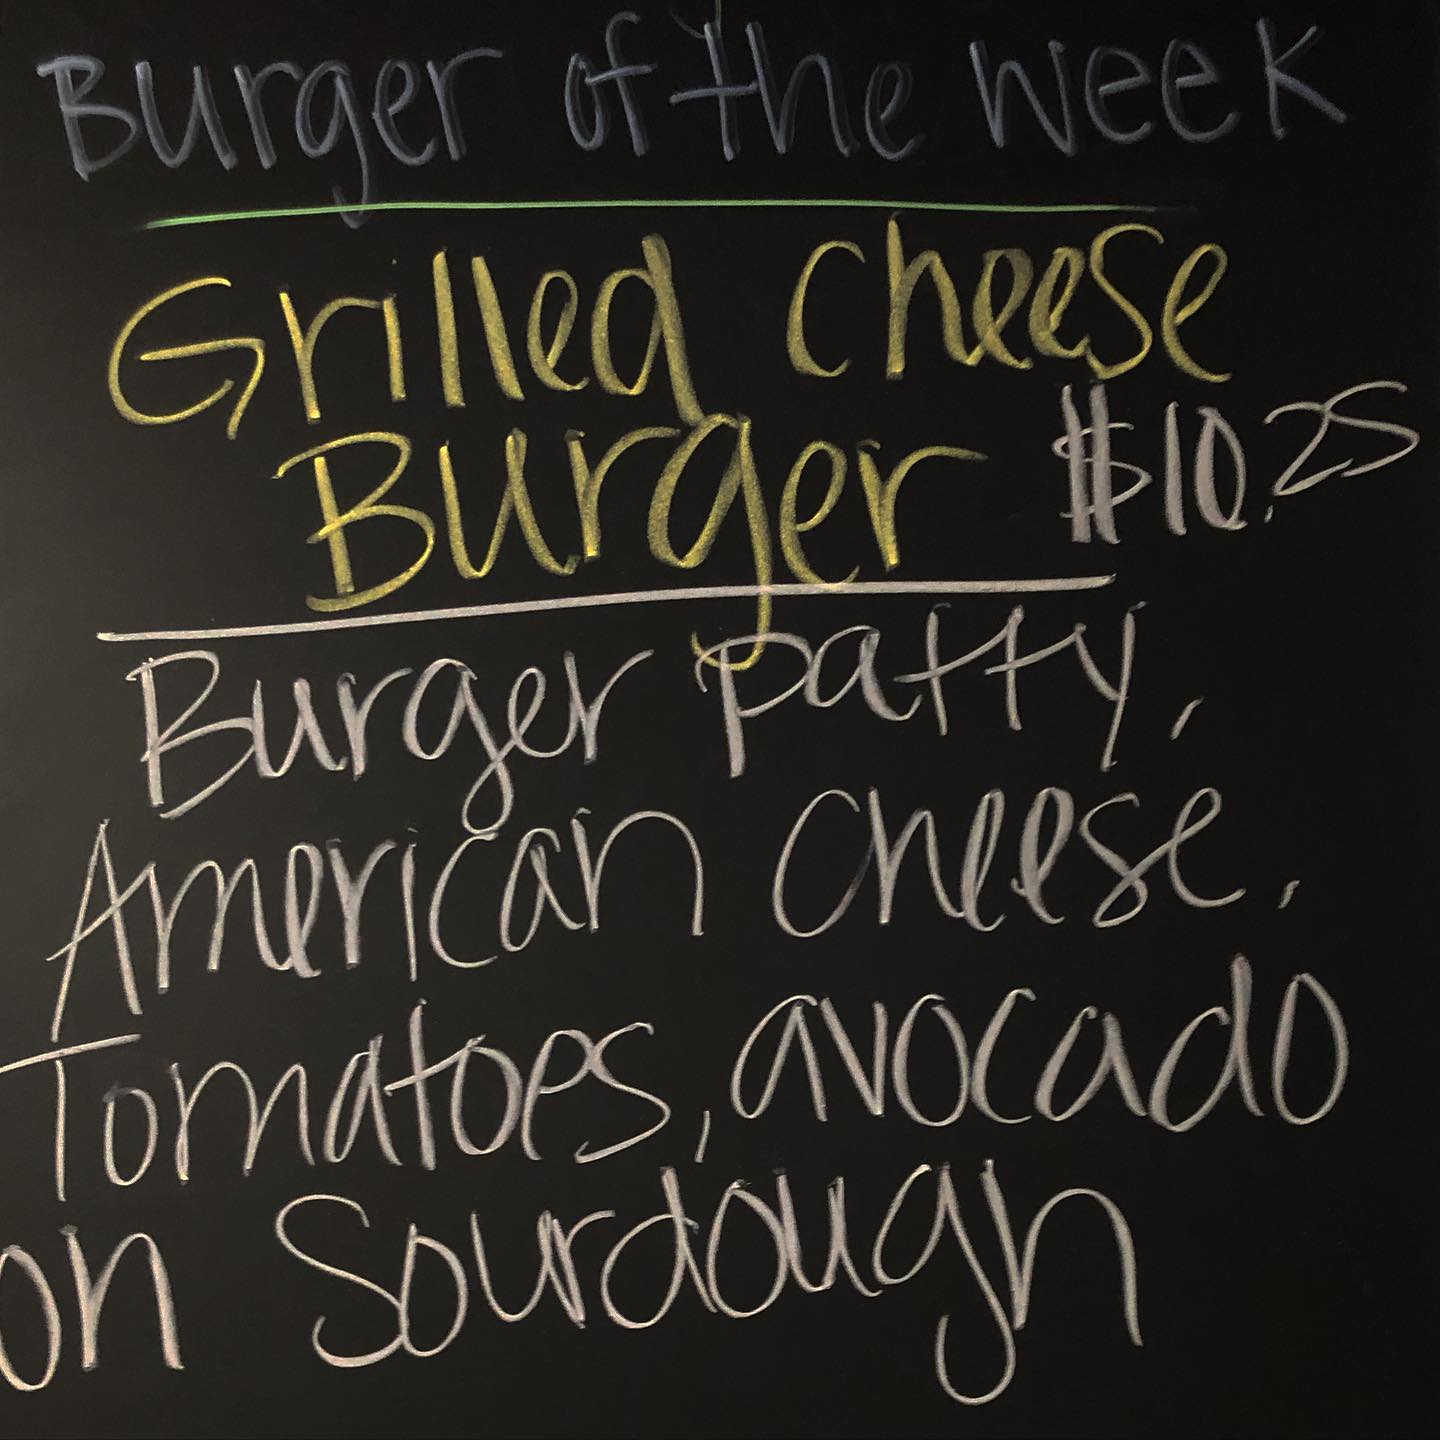 Burger of the week
Grilled cheese
Burger $10.25
Burger patty,
American cheese,
Tomatoes, avocado
on Sourdough